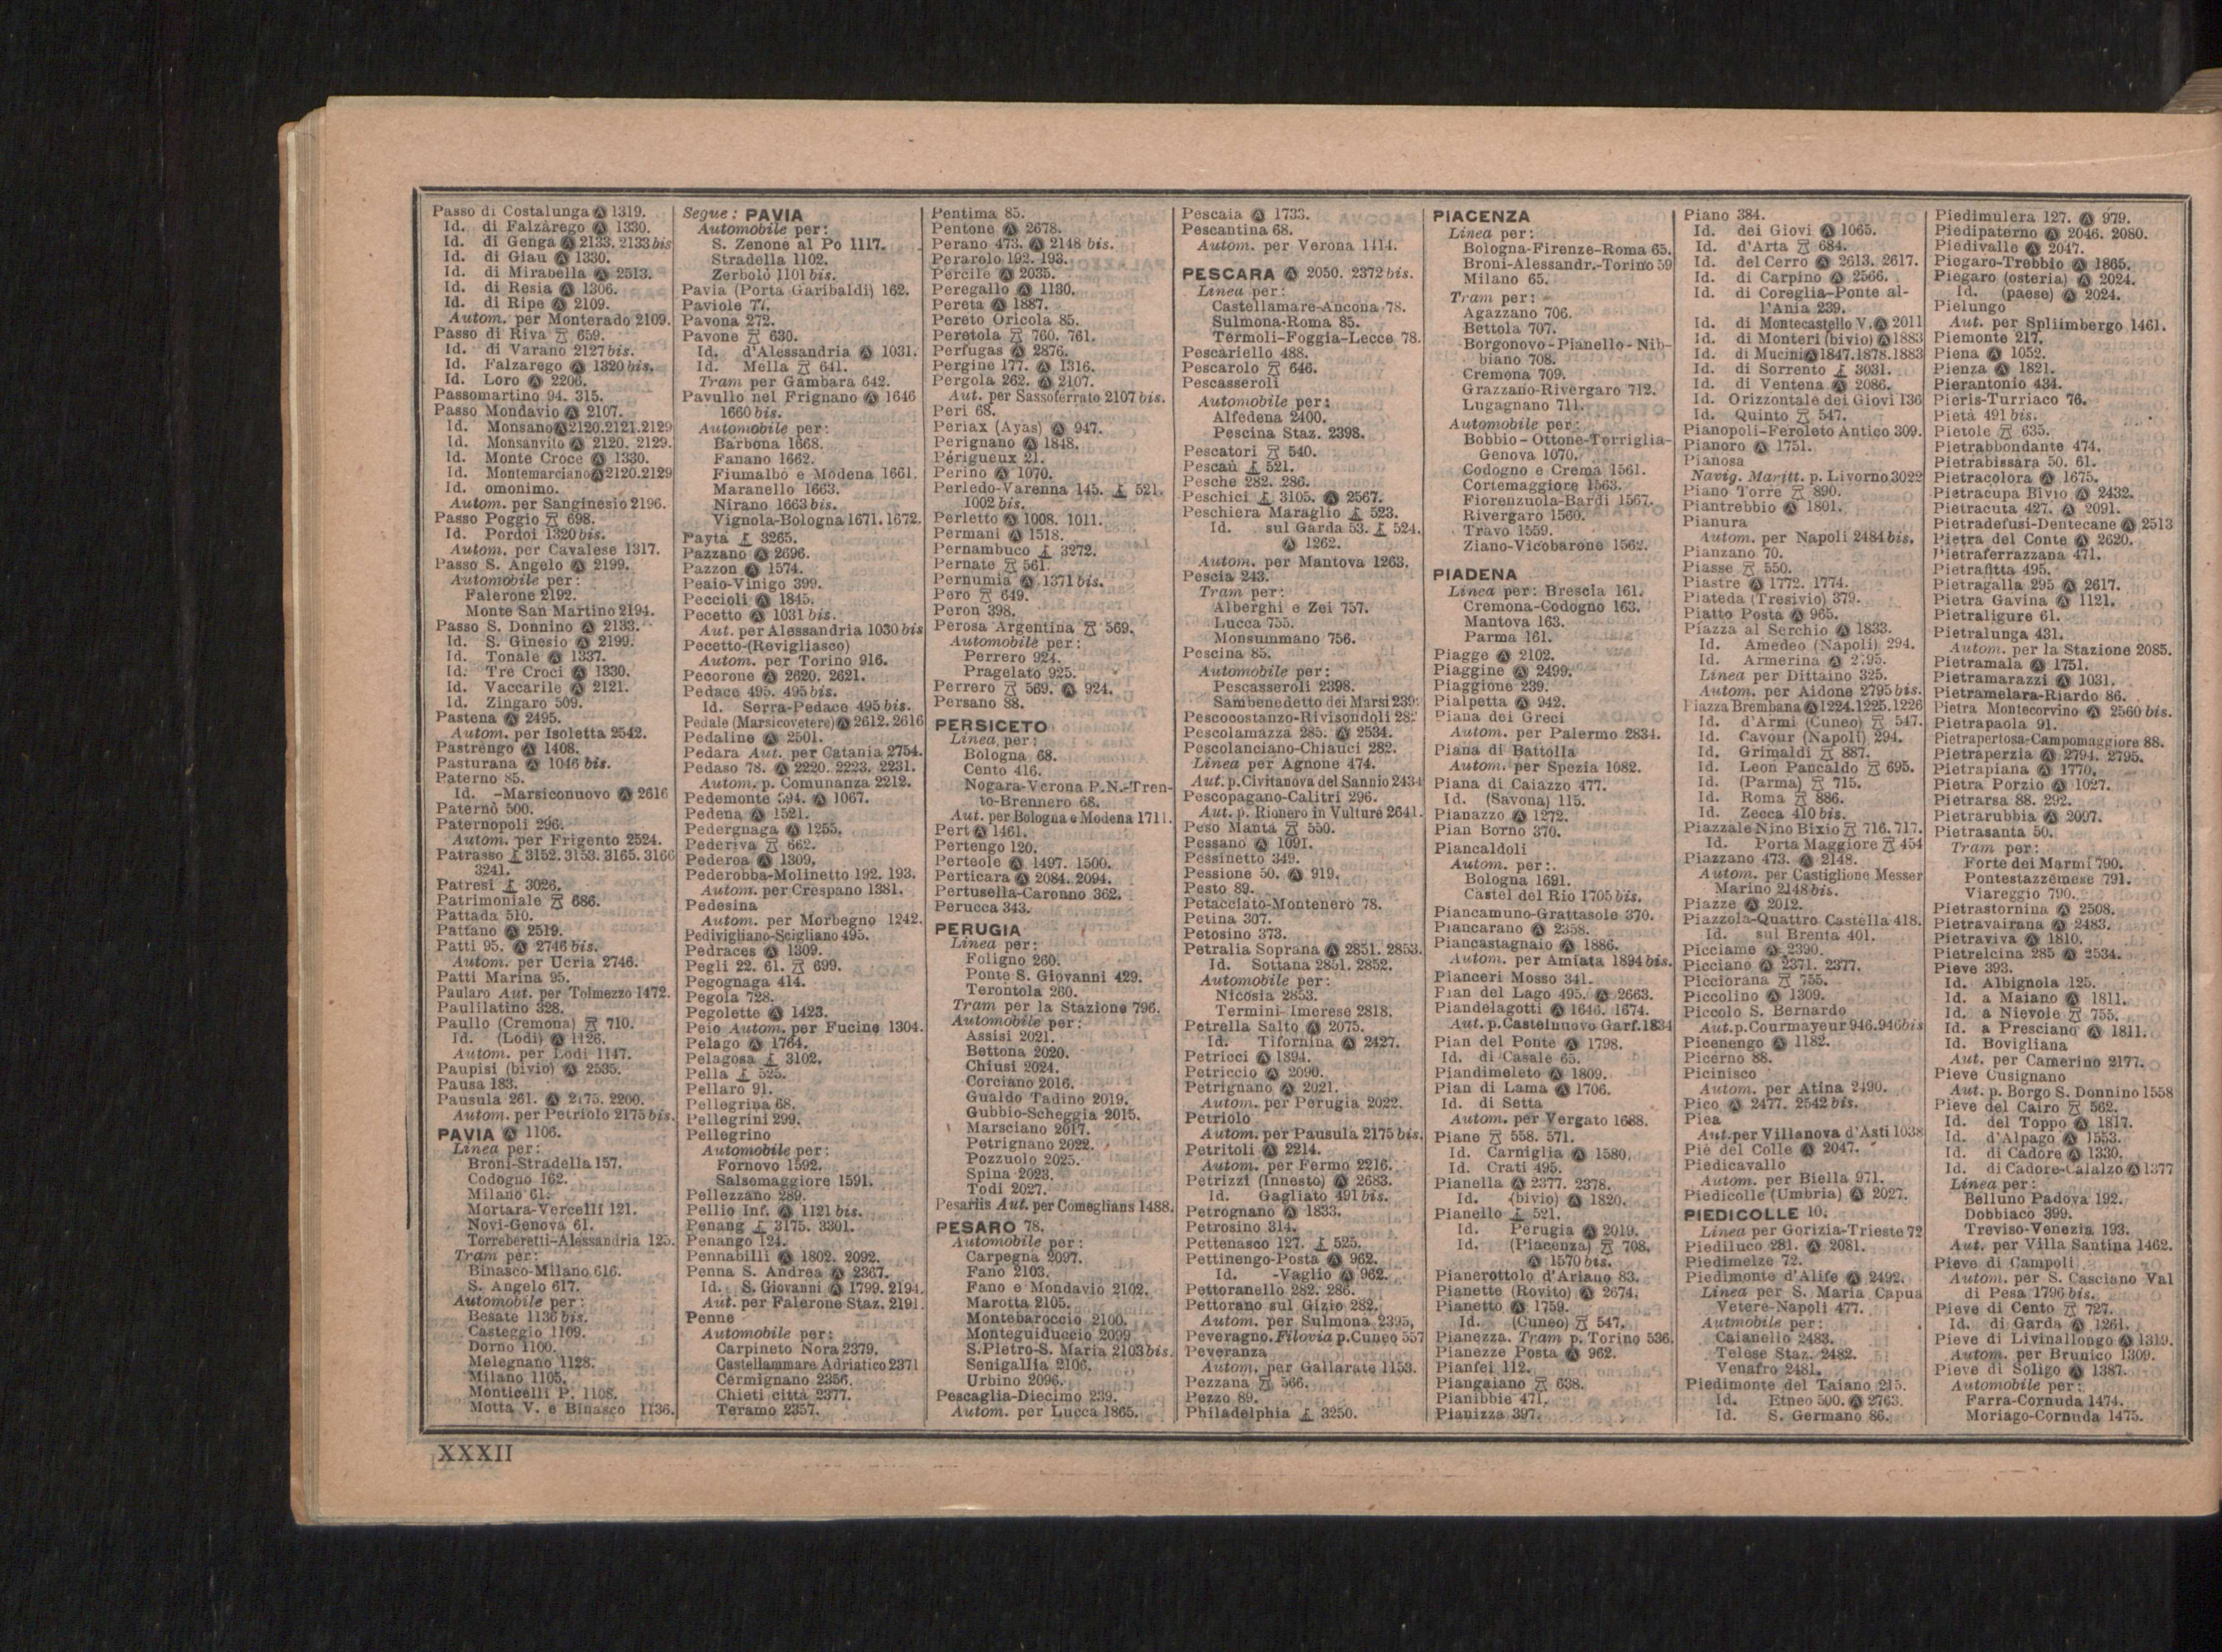 Passo di Costalunga Ⓐ 1319.
Id. di Falzàrego Ⓐ 1330.
Id. di Genga Ⓐ 2133. 2133 bis
Id. di Giau Ⓐ 1330.
Id. di Mirabella Ⓐ 2513.
Id. di Resia Ⓐ 1306.
Id. di Ripe Ⓐ 2109.
Autom. per Monterado 2109.
Passo di Riva 659.
Id. di Varano 2127 bis.
Id. Falzarego Ⓐ 1320 bis.
Id. Loro Ⓐ 2206.
Passomartino 94. 315.
Passo Mondavio Ⓐ 2107.
Id. Monsano Ⓐ 2120.2121.2129
Id. Monsanvito Ⓐ 2120. 2129.
Id. Monte Croce Ⓐ 1330.
Id. Montemarciano Ⓐ 2120.2129
Id. omonimo.
Autom. per Sanginesio 2196.
Passo Poggio 698.
Id. Pordoi 1320 bis.
Autom. per Cavalese 1317.
Passo S. Angelo Ⓐ 2199.
Automobile per:
Falerone 2192.
Monte San Martino 2194.
Passo S. Donnino Ⓐ 2133.
Id. S. Ginesio Ⓐ 2199.
Id. Tonale Ⓐ 1337.
Id. Tre Croci Ⓐ 1330.
Id. Vaccarile Ⓐ 2121.
Id. Zingaro 509.
Pastena Ⓐ 2495.
Autom. per Isoletta 2542.
Pastrengo Ⓐ 1408.
Pasturana Ⓐ 1046 bis.
Paterno 85.
Id. -Marsiconuovo Ⓐ 2616
Paternò 500.
Paternopoli 296.
Autom. per Frigento 2524.
Patrasso 3152. 3153. 3165. 3166
3241.
Patresi 3026.
Patrimoniale 686.
Pattada 510.
Pattano Ⓐ 2519.
Patti 95. Ⓐ 2746 bis.
Autom. per Ucria 2746.
Patti Marina 95.
Paularo Aut. per Tolmezzo 1472.
Paulilatino 328.
Paullo (Cremona) 710.
Id. (Lodi) Ⓐ 1126.
Autom. per Lodi 1147.
Paupisi (bivio) Ⓐ 2535.
Pausa 183.
Pausula 261. Ⓐ 2175. 2200.
Autom. per Petriolo 2175 bis.
PAVIA Ⓐ 1106.
Linea per:
Broni-Stradella 157.
Codogno 162.
Milano 61.
Mortara-Vercelli 121.
Novi-Genova 61.
Torreberetti-Alessandria 125.
Tram per:
Binasco-Milano 616.
S. Angelo 617.
Automobile per:
Besate 1136 bis.
Casteggio 1109.
Dorno 1100.
Melegnano 1128.
Milano 1105.
Monticelli P. 1108.
Motta V. e Binasco 1136.
Segue: PAVIA
Automobile per:
S. Zenone al Po 1117.
Stradella 1102.
Zerbolò 1101 bis.
Pavia (Porta Garibaldi) 162.
Paviole 77.
Pavona 272.
Pavone 630.
Id. d'Alessandria Ⓐ 1031.
Id. Mella 641.
Tram per Gambara 642.
Pavullo nel Frignano Ⓐ 1646
1660 bis.
Automobile per:
Barbona 1668.
Fanano 1662.
Fiumalbo e Modena 1661.
Maranello 1663.
Nirano 1663 bis.
Vignola-Bologna 1671. 1672.
Payta 3265.
Pazzano Ⓐ 2696.
Pazzon Ⓐ 1574.
Peaio-Vinigo 399.
Peccioli Ⓐ 1845.
Pecetto Ⓐ 1031 bis.
Aut. per Alessandria 1030 bis
Pecetto-(Revigliasco)
Autom. per Torino 916.
Pecorone Ⓐ 2620. 2621.
Pedace 495. 495 bis.
Id. Serra-Pedace 495 bis.
Pedale (Marsicovetere) Ⓐ 2612. 2616
Pedaline Ⓐ 2501.
Pedara Aut. per Catania 2754.
Pedaso 78. Ⓐ 2220. 2223. 2231.
Autom. p. Comunanza 2212.
Pedemonte 594. Ⓐ 1067.
Pedena Ⓐ 1521.
Pedergnaga Ⓐ 1255.
Pederiva 662.
Pederoa Ⓐ 1309.
Pederobba-Molinetto 192. 193.
Autom. per Crespano 1381.
Pedesina
Autom. per Morbegno 1242.
Pedivigliano-Scigliano 495.
Pedraces Ⓐ 1309.
Pegli 22. 61. 699.
Pegognaga 414.
Pegola 728.
Pegolette Ⓐ 1423.
Peio Autom. per Fucine 1304.
Pelago Ⓐ 1764.
Pelagosa 3102.
Pella 525.
Pellaro 91.
Pellegrina 68.
Pellegrini 299.
Pellegrino
Automobile per:
Fornovo 1592.
Salsomaggiore 1591.
Pellezzano 289.
Pellio Inf. Ⓐ 1121 bis.
Penang 3175. 3301.
Penango 124.
Pennabilli Ⓐ 1802. 2092.
Penna S. Andrea Ⓐ 2367.
Id. S. Giovanni Ⓐ 1799. 2194.
Aut. per Falerone Staz. 2191.
Penne
Automobile per:
Carpineto Nora 2379.
Castellammare Adriatico 2371
Cermignano 2356.
Chieti città 2377.
Teramo 2357.
Pentima 85.
Pentone Ⓐ 2678.
Perano 473. Ⓐ 2148 bis.
Perarolo 192. 193.
Percile Ⓐ 2035.
Peregallo Ⓐ 1130.
Pereta Ⓐ 1887.
Pereto Oricola 85.
Peretola 760. 761.
Perfugas Ⓐ 2876.
Pergine 177. Ⓐ 1316.
Pergola 262. Ⓐ 2107.
Aut. per Sassoferrato 2107 bis.
Peri 68.
Periax (Ayas) Ⓐ 947.
Perignano Ⓐ 1848.
Périgueux 21.
Perino Ⓐ 1070.
Perledo-Varenna 145. 521.
1002 bis.
Perletto Ⓐ 1008. 1011.
Permani Ⓐ 1518.
Pernambuco 3272.
Pernate 561.
Pernumia Ⓐ 1371 bis.
Pero 649.
Peron 398.
Perosa Argentina 569.
Automobile per:
Perrero 924.
Pragelato 925.
Perrero 569. Ⓐ 924.
Persano 88.
PERSICETO
Linea per:
Bologna 68.
Cento 416.
Nogara-Verona P.N.-Tren-
to-Brennero 68.
Aut. per Bologna e Modena 1711.
Pert Ⓐ 1461.
Pertengo 120.
Perteole Ⓐ 1497. 1500.
Perticara Ⓐ 2084. 2094.
Pertusella-Caronno 362.
Perucca 343.
PERUGIA
Linea per:
Foligno 260.
Ponte S. Giovanni 429.
Terontola 260.
Tram per la Stazione 796.
Automobile per:
Assisi 2021.
Bettona 2020.
Chiusi 2024.
Corciano 2016.
Gualdo Tadino 2019.
Gubbio-Scheggia 2015.
Marsciano 2017.
Petrignano 2022.
Pozzuolo 2025.
Spina 2023.
Todi 2027.
Pesariis Aut. per Comeglians 1488.
PESARO 78.
Automobile per:
Carpegna 2097.
Fano 2103.
Fano e Mondavio 2102.
Marotta 2105.
Montebaroccio 2100.
Monteguiduccio 2099
S.Pietro-S. Maria 2103 bis.
Senigallia 2106.
Urbino 2096.
Pescaglia-Diecimo 239.
Autom. per Lucca 1865.
Pescaia Ⓐ 1733.
Pescantina 68.
Autom. per Verona 1414.
PESCARA Ⓐ 2050. 2372 bis.
Linea per:
Castellamare-Ancona 78.
Sulmona-Roma 85.
Termoli-Foggia-Lecce 78.
Pescariello 488.
Pescarolo 646.
Pescasseroli
Automobile per:
Alfedena 2400.
Pescina Staz. 2398.
Pescatori 540.
Pescaù 521.
Pesche 282. 286.
Peschici 3105. Ⓐ 2567.
Peschiera Maraglio 523.
Id. sul Garda 53. 524.
Ⓐ 1262.
Autom. per Mantova 1263.
Pescia 243.
Tram per:
Alberghi e Zei 757.
Lucca 755.
Monsummano 756.
Pescina 85.
Automobile per:
Pescasseroli 2398.
Sambenedetto dei Marsi 239
Pescocostanzo-Rivisondoli 28
Pescolamazza 285. Ⓐ 2534.
Pescolanciano-Chiauci 282.
Linea per Agnone 474.
Aut. p. Civitanova del Sannio 2434
Pescopagano-Calitri 296.
Aut. p. Rionero in Vulture 2641.
Peso Manta 550.
Pessano Ⓐ 1091.
Pessinetto 349.
Pessione 50. Ⓐ 919.
Pesto 89.
Petacciato-Montenero 78.
Petina 307.
Petosino 373.
Petralia Soprana Ⓐ 2851. 2853.
Id. Sottana 2851. 2852.
Automobile per:
Nicosia 2853.
Termini-Imerese 2818.
Petrella Salto Ⓐ 2075.
Id. Tifornina Ⓐ 2427.
Petricci Ⓐ 1894.
Petriccio Ⓐ 2090.
Petrignano Ⓐ 2021.
Autom. per Perugia 2022.
Petriolo
Autom. per Pausula 2175 bis.
Petritoli Ⓐ 2214.
Autom. per Fermo 2216.
Petrizzi (Innesto) Ⓐ 2683.
Id. Gagliato 491 bis.
Petrognano Ⓐ 1833.
Petrosino 314.
Pettenasco 127. 525.
Pettinengo-Posta Ⓐ 962.
Id. -Vaglio Ⓐ 962.
Pettoranello 282. 286.
Pettorano sul Gizio 282.
Autom. per Sulmona 2395.
Peveragno. Filovia p.Cuneo 557
Peveranza
Autom. per Gallarate 1153.
Pezzana 566.
Pezzo 89.
Philadelphia 3250.
PIACENZA
Linea per:
Bologna-Firenze-Roma 65.
Broni-Alessandr.-Torino 59
Milano 65.
Tram per:
Agazzano 706.
Bettola 707.
Borgonovo-Pianello-Nib-
biano 708.
Cremona 709.
Grazzano-Rivergaro 712.
Lugagnano 711.
Automobile per:
Bobbio-Ottone-Torriglia-
Genova 1070.
Codogno e Crema 1561.
Cortemaggiore 1563.
Fiorenzuola-Bardi 1567.
Rivergaro 1560.
Travo 1559.
Ziano-Vicobarone 1562.
PIADENA
Linea per: Brescia 161.
Cremona-Codogno 163.
Mantova 163.
Parma 161.
Piagge Ⓐ 2102.
Piaggine Ⓐ 2499.
Piaggione 239.
Pialpetta Ⓐ 942.
Piana dei Greci
Autom. per Palermo 2834.
Piana di Battolla
Autom. per Spezia 1082.
Piana di Caiazzo 477.
Id. (Savona) 115.
Pianazzo Ⓐ 1272.
Pian Borno 370.
Piancaldoli
Autom. per:
Bologna 1691.
Castel del Rio 1705 bis.
Piancamuno-Grattasole 370.
Piancarano Ⓐ 2358.
Piancastagnaio Ⓐ 1886.
Autom. per Amiata 1894 bis.
Pianceri Mosso 341.
Pian del Lago 495. Ⓐ 2663.
Piandelagotti Ⓐ 1646. 1674.
Aut. p.Castelnuovo Garf.1834
Pian del Ponte Ⓐ 1798.
Id. di Casale 65.
Piandimeleto Ⓐ 1809.
Pian di Lama Ⓐ 1706.
Id. di Setta
Autom. per Vergato 1688.
Piane 558. 571.
Id. Carniglia Ⓐ 1580.
Id. Crati 495.
Pianella Ⓐ 2377. 2378.
Id. (bivio) Ⓐ 1820.
Pianello 521.
Id. Perugia Ⓐ 2019.
Id. (Piacenza) 708.
Ⓐ 1570 bis.
Pianerottolo d'Ariano 83.
Pianette (Rovito) Ⓐ 2674.
Pianetto Ⓐ 1759.
Id. (Cuneo) 547.
Pianezza. Tram p. Torino 536.
Pianezze Posta Ⓐ 962.
Pianfei 112.
Piangaiano 638.
Pianibbie 471.
Pianizza 397.
Piano 384.
Id. dei Giovi Ⓐ 1065.
Id. d'Arta 684.
Id. del Cerro Ⓐ 2613. 2617.
Id. di Carpino Ⓐ 2566.
Id. di Coreglia-Ponte al-
l'Ania 239.
Id. di Montecastello V. Ⓐ 2011
Id. di Monteri (bivio) Ⓐ 1883
Id. di Mucini Ⓐ 1847.1878.1883
Id. di Sorrento 3031.
Id. di Ventena Ⓐ 2086.
Id. Orizzontale dei Giovi 136
Id. Quinto 547.
Pianopoli-Feroleto Antico 309.
Pianoro Ⓐ 1751.
Pianosa
Navig. Maritt. p. Livorno 3022
Piano Torre 890.
Piantrebbio Ⓐ 1801.
Pianura
Autom. per Napoli 2484 bis.
Pianzano 70.
Piasse 550.
Piastre Ⓐ 1772. 1774.
Piateda (Tresivio) 379.
Piatto Posta Ⓐ 965.
Piazza al Serchio Ⓐ 1833.
Id. Amedeo (Napoli) 294.
Id. Armerina Ⓐ 2795.
Linea per Dittaino 325.
Autom. per Aidone 2795 bis.
Piazza Brembana Ⓐ 1224.1225.1226
Id. d'Armi (Cuneo) 547.
Id. Cavour (Napoli) 294.
Id. Grimaldi 887.
Id. Leon Pancaldo 695.
Id. (Parma) 715.
Id. Roma 886.
Id. Zecca 410 bis.
Piazzale Nino Bixio 716. 717.
Id. Porta Maggiore 454
Piazzano 473. Ⓐ 2148.
Autom. per Castiglione Messer
Marino 2148 bis.
Piazze Ⓐ 2012.
Piazzola-Quattro Castella 418.
Id. sul Brenta 401.
Picciame Ⓐ 2390.
Picciano Ⓐ 2371. 2377.
Picciorana 755.
Piccolino Ⓐ 1309.
Piccolo S. Bernardo
Aut.p.Courmayeur 946.946bis
Picenengo Ⓐ 1182.
Picerno 88.
Picinisco
Autom. per Atina 2490.
Pico Ⓐ 2477. 2542 bis.
Piea
Aut.per Villanova d'Asti 1038
Piè del Colle Ⓐ 2047.
Piedicavallo
Autom. per Biella 971.
Piedicolle (Umbria) Ⓐ 2027.
PIEDICOLLE 10.
Linea per Gorizia-Trieste 72
Piediluco 281. Ⓐ 2081.
Piedimelze 72.
Piedimonte d'Alife Ⓐ 2492.
Linea per S. Maria Capua
Vetere-Napoli 477.
Autmobile per:
Caianello 2483.
Telese Staz. 2482.
Venafro 2481.
Piedimonte del Taiano 215.
Id. Etneo 500. Ⓐ 2763.
Id. S. Germano 86.
Piedimulera 127. Ⓐ 979.
Piedipaterno Ⓐ 2046. 2080.
Piedivalle Ⓐ 2047.
Piegaro-Trebbio Ⓐ 1865.
Piegaro (osteria) Ⓐ 2024.
Id. (paese) Ⓐ 2024.
Pielungo
Aut. per Spliimbergo 1461.
Piemonte 217.
Piena Ⓐ 1052.
Pienza Ⓐ 1821.
Pierantonio 434.
Pieris-Turriaco 76.
Pietà 491 bis.
Pietole 635.
Pietrabbondante 474.
Pietrabissara 50. 61.
Pietracolora Ⓐ 1675.
Pietracupa Bivio Ⓐ 2432.
Pietracuta 427. Ⓐ 2091.
Pietradefusi-Dentecane Ⓐ 2513
Pietra del Conte Ⓐ 2620.
Pietraferrazzana 471.
Pietrafitta 495.
Pietragalla 295 Ⓐ 2617.
Pietra Gavina Ⓐ 1121.
Pietraligure 61.
Pietralunga 431.
Autom. per la Stazione 2085.
Pietramala Ⓐ 1751.
Pietramarazzi Ⓐ 1031.
Pietramelara-Riardo 86.
Pietra Montecorvino Ⓐ 2560 bis.
Pietrapaola 91.
Pietrapertosa-Campomaggiore 88.
Pietraperzia Ⓐ 2794. 2795.
Pietrapiana Ⓐ 1770.
Pietra Porzio Ⓐ 1027.
Pietrarsa 88. 292.
Pietrarubbia Ⓐ 2097.
Pietrasanta 50.
Tram per:
Forte dei Marmi 790.
Pontestazzemese 791.
Viareggio 790.
Pietrastornina Ⓐ 2508.
Pietravairana Ⓐ 2483.
Pietraviva Ⓐ 1810.
Pietrelcina 285 Ⓐ 2534.
Pieve 393.
Id. Albignola 125.
Id. a Maiano Ⓐ 1811.
Id. a Nievole 755.
Id. a Presciano Ⓐ 1811.
Id. Bovigliana
Aut. per Camerino 2177.
Pieve Cusignano
Aut. p. Borgo S. Donnino 1558
Pieve del Cairo 562.
Id. del Toppo Ⓐ 1817.
Id. d'Alpago Ⓐ 1553.
Id. di Cadore Ⓐ 1330.
Id. di Cadore-Calalzo Ⓐ 1377
Linea per:
Belluno Padova 192.
Dobbiaco 399.
Treviso-Venezia 193.
Aut. per Villa Santina 1462.
Pieve di Campoli
Autom. per S. Casciano Val
di Pesa 1796 bis.
Pieve di Cento 727.
Id. di Garda Ⓐ 1261.
Pieve di Livinallongo Ⓐ 1319.
Autom. per Brunico 1309.
Pieve di Soligo Ⓐ 1387.
Automobile per:
Farra-Cornuda 1474.
Moriago-Cornuda 1475.
XXXII